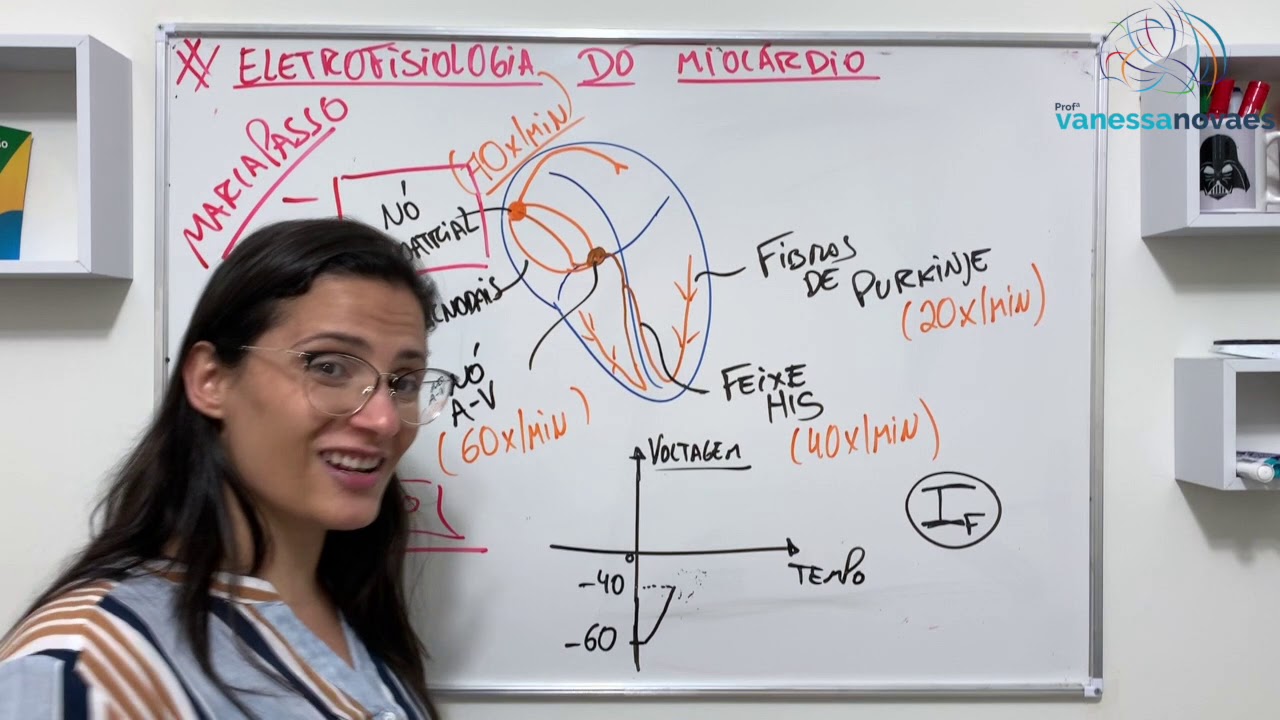 ELETROFISIOLOGIA DO MIOCÁRDIO
MARCAPASSO
(70x/MIN)
NÓ
NÓ
A-V
(60x/MIN)
FIBRAS
DE PURKINJE
(20x/MIN)
FEIXE
HIS
(40x/MIN)
VOLTAGEM
0
-40
-60
TEMPO
IF
Profª
vanessanovaes